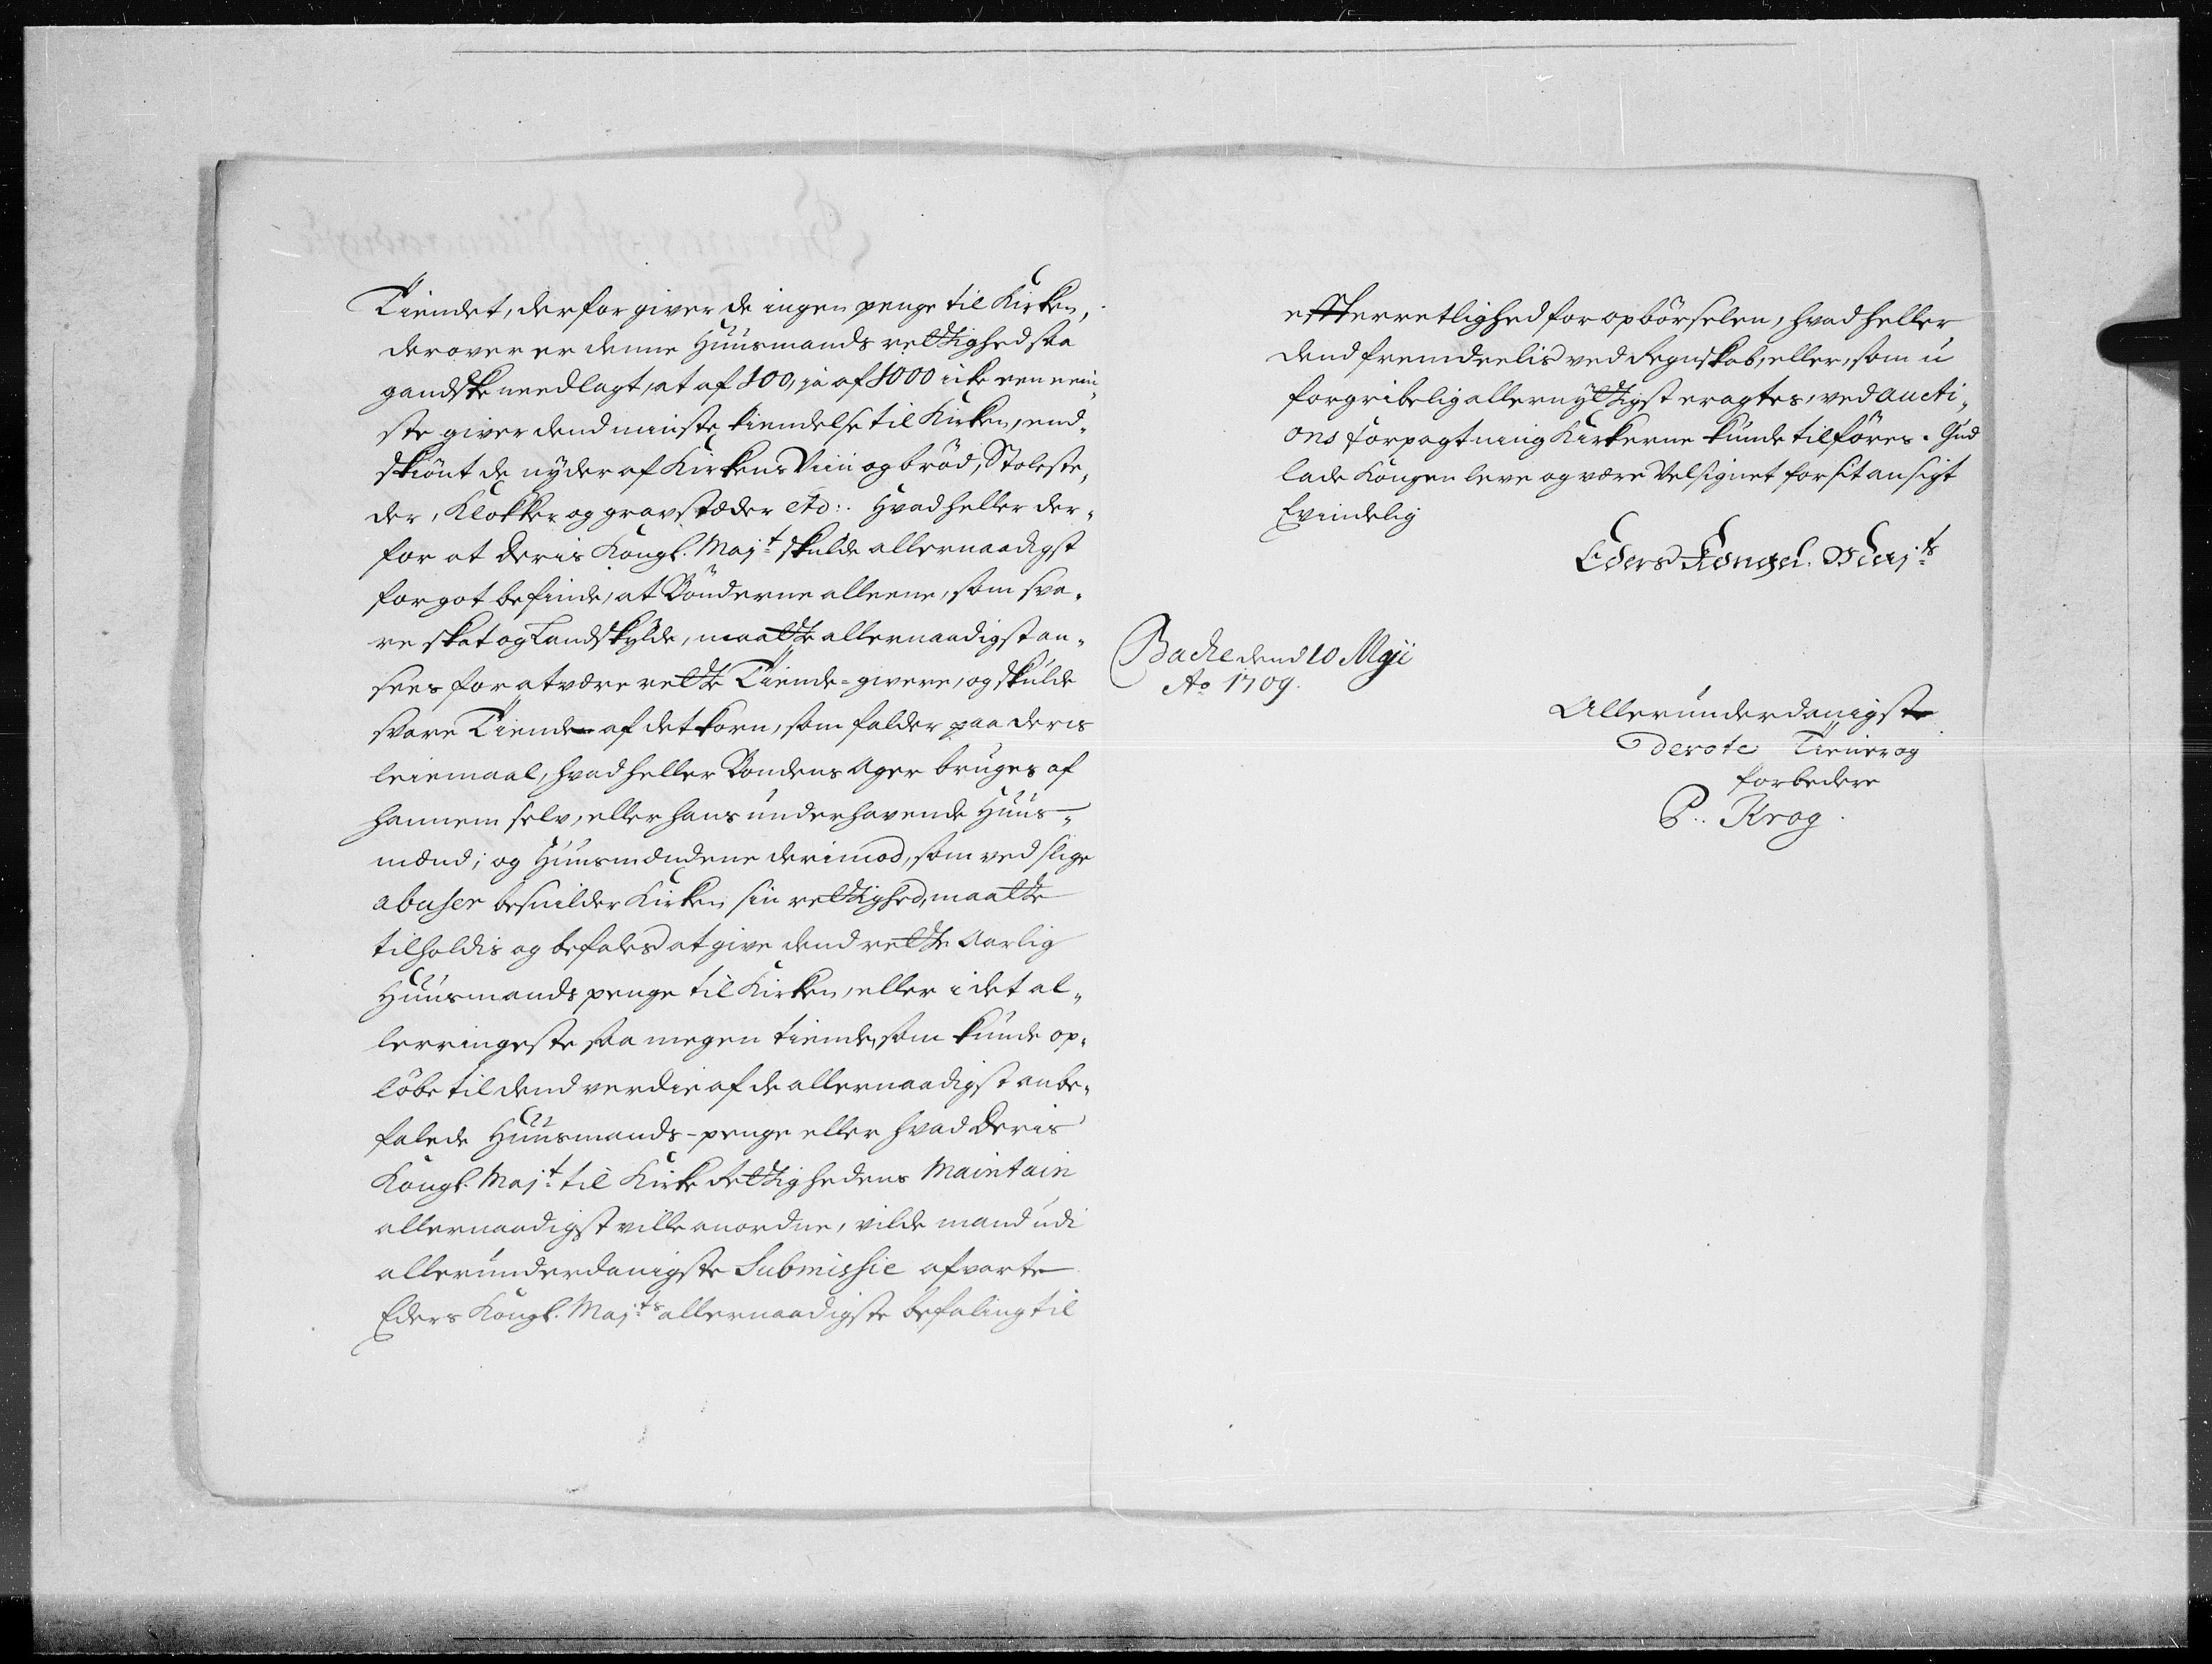 Tiendet, derfor giver de ingen penge til Kirken,
derover er denne Huusmands rettighed saa
gandske needlagt, at af 100, ja af 1000 icke een nem¬
ste giver dend minste kiendelse til Kirken, end¬
skiønt de nyder af Kirkens Viin og brød, Stoleste¬
der, Klokker og gravstæder etc:. Hvad heller der¬
for at Deris Kongl. Majt skulde allernaadigst
for got befinde, at Bønderne alleene, som sva¬
re skat og Landskylde, maatte allernaadigst an¬
sees for at være rette Tiende-givere, og skulde
svare Tiende af det korn, som falder paa deris
leiemaal, hvad heller Bondens Ager bruges af
hannem selv, eller hans underhavende Huus¬
mænd; og Huusmændene derimod, som ved slige
abuser besnilder Kirken sin rettighed, maatte
tilholdis og befales at give dend rette Aarlig
Huusmands penge til Kirken, eller i det al¬
lerringeste saa megen tiende, som kunde op¬
løbe til dend verdie af de allernaadigst anbe¬
falede Huusmands-penge eller hvad Deris
Kongl. Majt til Kirke Rettighedens Maintain
allernaadigst ville anordne, vilde mand udi
allerunderdanigste Submissie afvarte
Eders Kongl. Majts allernaadigste befaling til
efterretlighed for opbørselen, hvad heller
dend fremdeelis ved Regnskab, eller, som u
forgribelig allernyttigst eragtes, ved aucti¬
ons forpagtning Kirkerne kunde tilføres. Gud
lade Kongen leve og være Velsignet for sit ansigt
Evindelig
Eders Kongel. Majts
Bache dend 10 Maji
Ao 1709.
Allerunderdanigste
devote Tiener og
forbedere
P. Krog.